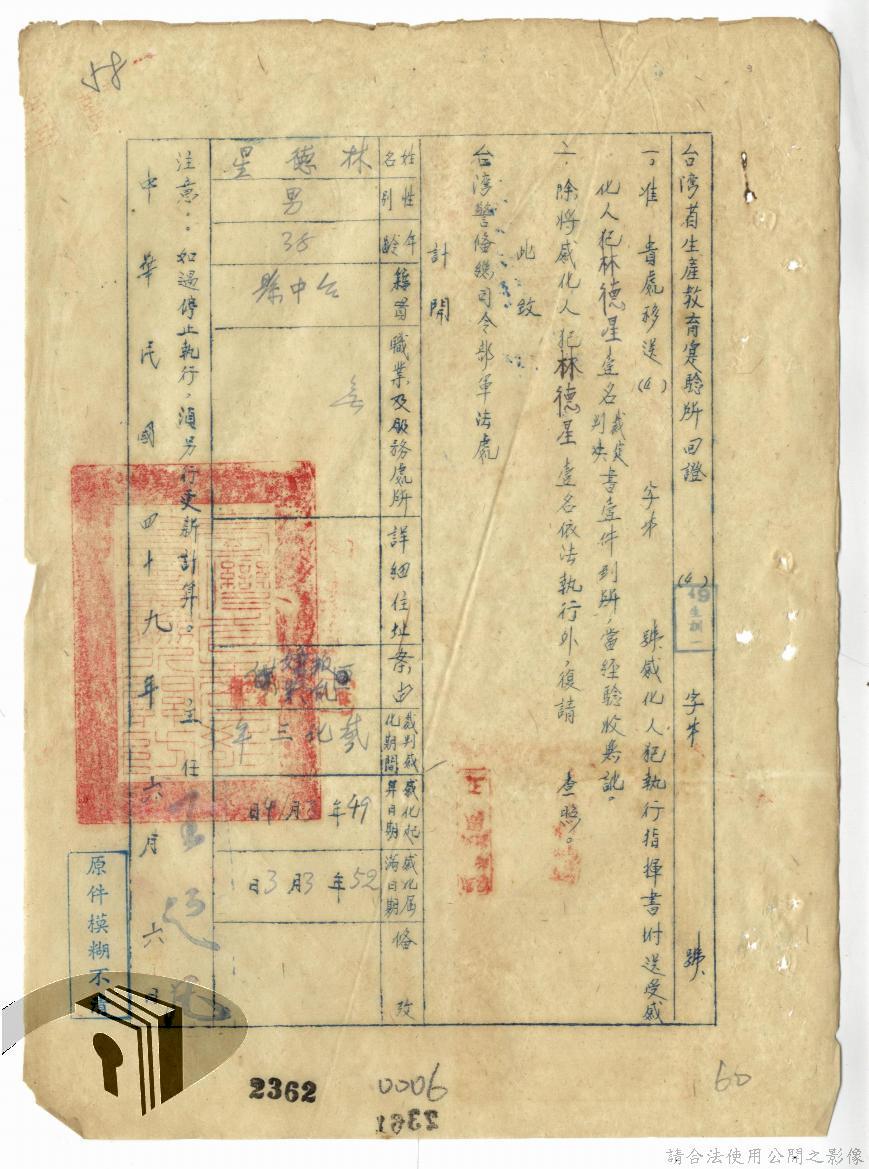 58
台湾省生產教育實驗所回證 (49) 生訓一 字第 號
一、准 貴處移送(4) 字第 號感化人犯執行指揮書附送受感
化人犯林德星壹名裁定判決書壹件到所，當經驗收無訛。
二、除將感化人犯林德星壹名依法執行外，復請 查照。
此致
台湾警備總司令部軍法處
計開
姓名 林德星
性別 男
年齡 38
籍貫 台中縣
職業及服務處所 無
詳細住址
案由 叛亂
裁判感化期間 感化三年
感化起算日期 49年3月4日
感化屆滿日期 52年3月3日
備攷
注意：如遇停止執行，須另行更新計算。
主任
中華民國四十九年六月六日
原件模糊不清
2362
0006
2361
60
請合法使用公開之影像